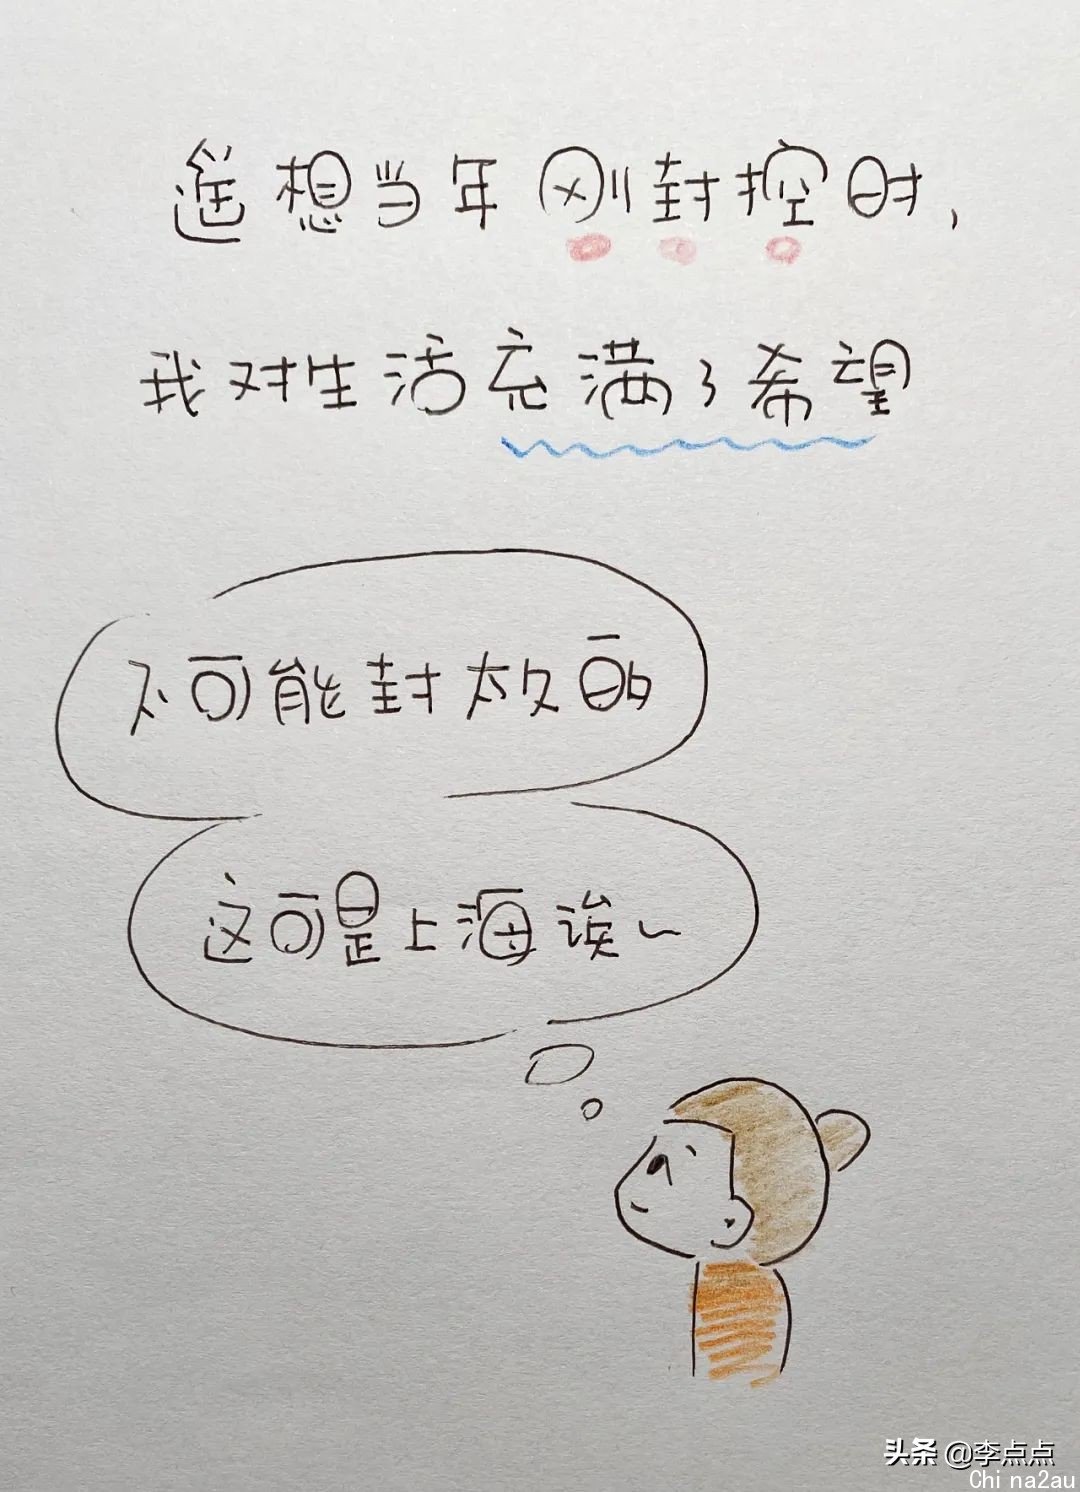 遥想当年刚封控时,
我对生活充满了希望
不可能封太久的
这可是上海诶~
头条 @李点点
China2au